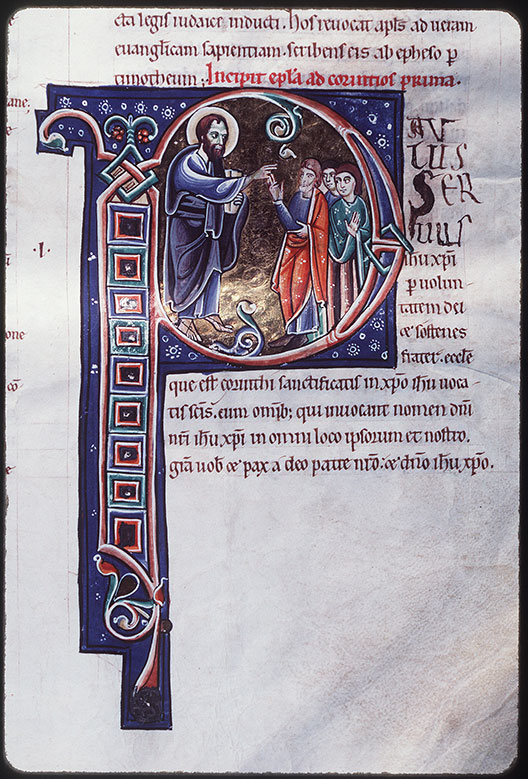 cta legis iudaice inducti. Hos reuocat apl̄s ad ueram
euanglicam sapientiam. scribens eis ab epheso p̄
timotheum; Incipit ep̄la ad corintios prima.
ane;
P
AV
LUS
SER
uuus
ihu xp̄i
p uolun
tatem dei
⁊ sostenes
frater. eccłe
.I.
one
que est corinthi sanctificatis in xp̄o ihu uoca-
tis sc̄is. cum omib; qui inuocant nomen dn̄i
nr̄i ihu xp̄i in omni loco ipsorum et nostro.
gr̄a uob ⁊ pax a deo patre nr̄o. ⁊ dn̄o ihu xp̄o.